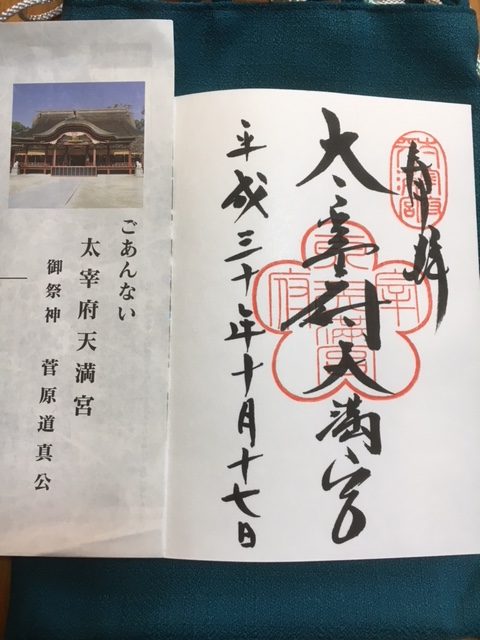 奉拝
太宰府天満宮
平成三十年十月十七日
ごあんない
太宰府天満宮
御祭神 菅原道真公